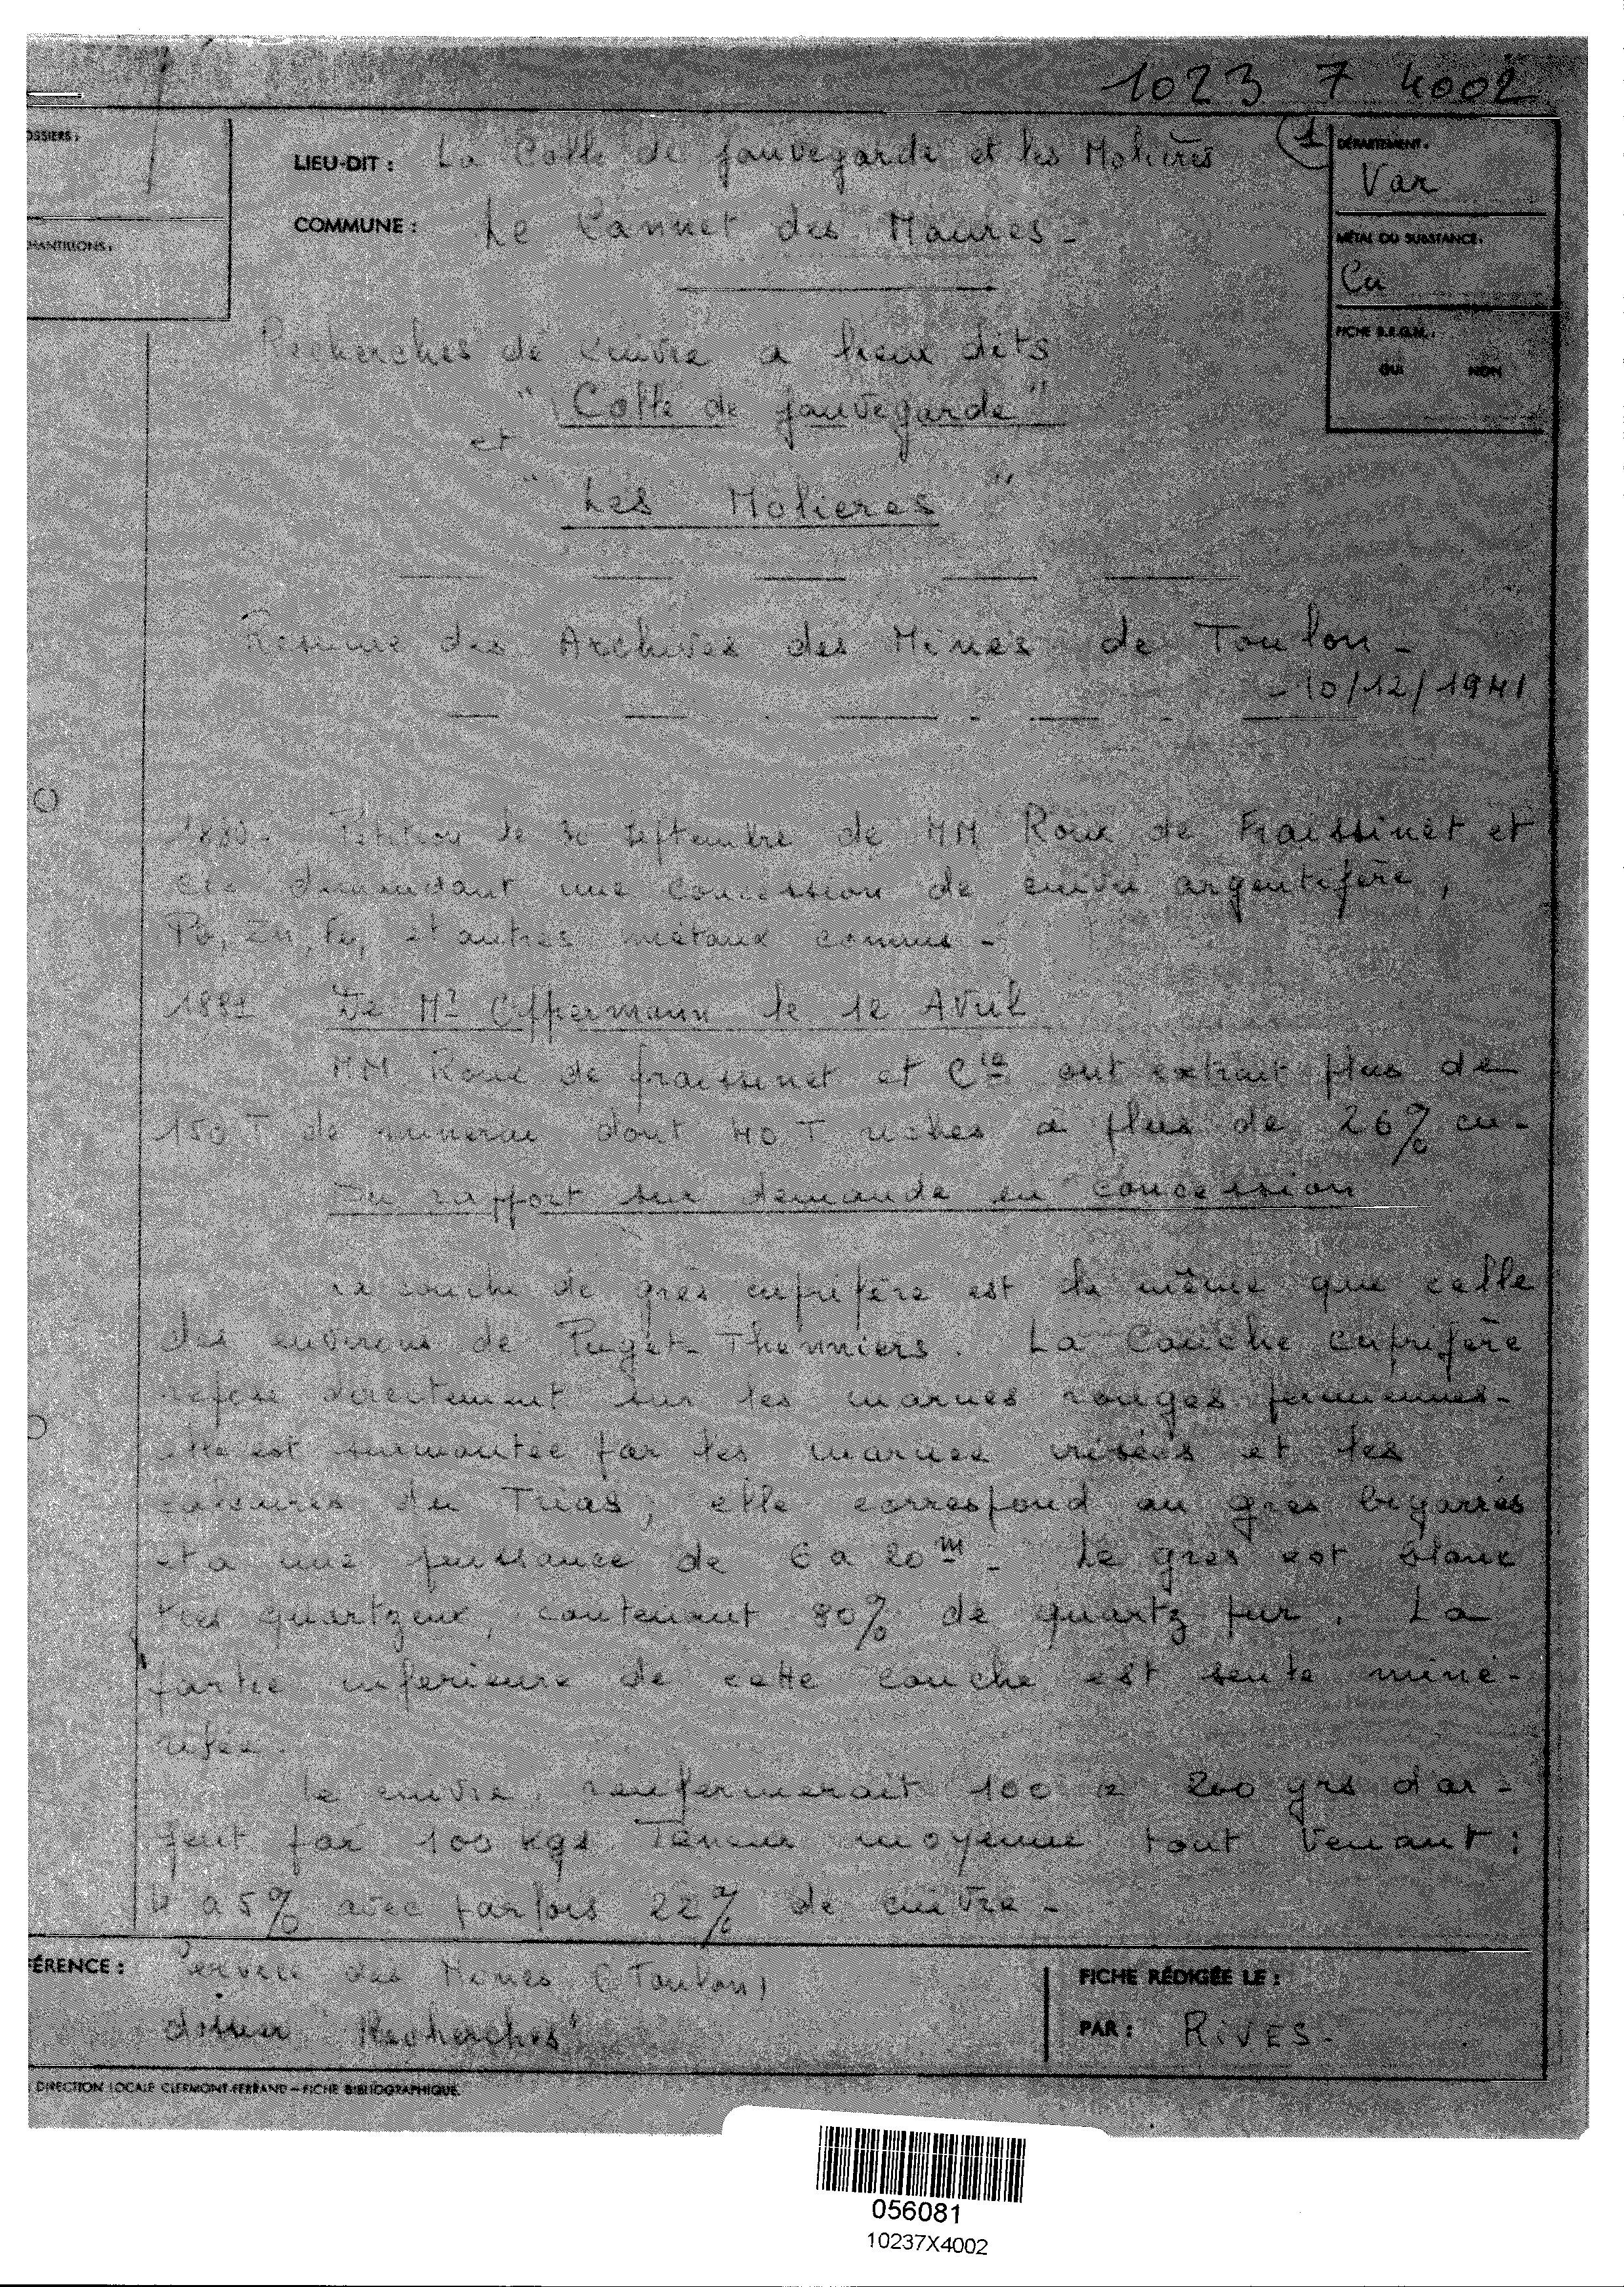 1023 7 4002
OSSIERS :
LIEU-DIT : La Colle de Sauvegarde et les Molières
(1)
DÉPARTEMENT :
Var
HANTILLONS :
COMMUNE : Le Cannet des Maures -
MÉTAL OU SUBSTANCE :
Cu
FICHE B.R.G.M. :
OUI NON
Recherches de cuivre a lieux dits
" Colle de Sauvegarde "
et
" Les Molieres "
Résumé des Archives des Mines de Toulon -
- 10/12/1941
1880 - Pétition le 30 Septembre de MM Roux de Fraissinet et
Cie demandant une concession de cuivre argentifère,
Pb, Zn, Fe, et autres métaux connus -
De Mr Oppermann le 12 Avril
MM Roux de fraissinet et Cie ont extrait plus de
150 T de minerai dont 40 T riches à plus de 26% cu -
Du rapport sur demande en concession
La couche de grès cuprifère est la même que celle
des environs de Puget-Thenniers. La Couche cuprifère
repose directement sur les marnes rouges permiennes -
elle est surmontée par les marnes irisées et les
calcaires du Trias, elle correspond au grès bigarrés
et a une puissance de 6 a 20 m - Le grès est blanc
très quartzeux, contenant 80% de quartz pur. La
partie inferieure de cette couche est seule miné-
ralisée.
Le cuivre renfermerait 100 a 200 grs d'ar-
gent par 100 kgs Teneur moyenne tout venant :
4 a 5% avec parfois 22% de cuivre -
FÉRENCE : Service des Mines (Toulon)
dossier "Recherches"
FICHE RÉDIGÉE LE :
PAR : RIVES -
DIRECTION LOCALE CLERMONT-FERRAND - FICHE BIBLIOGRAPHIQUE
056081
10237X4002